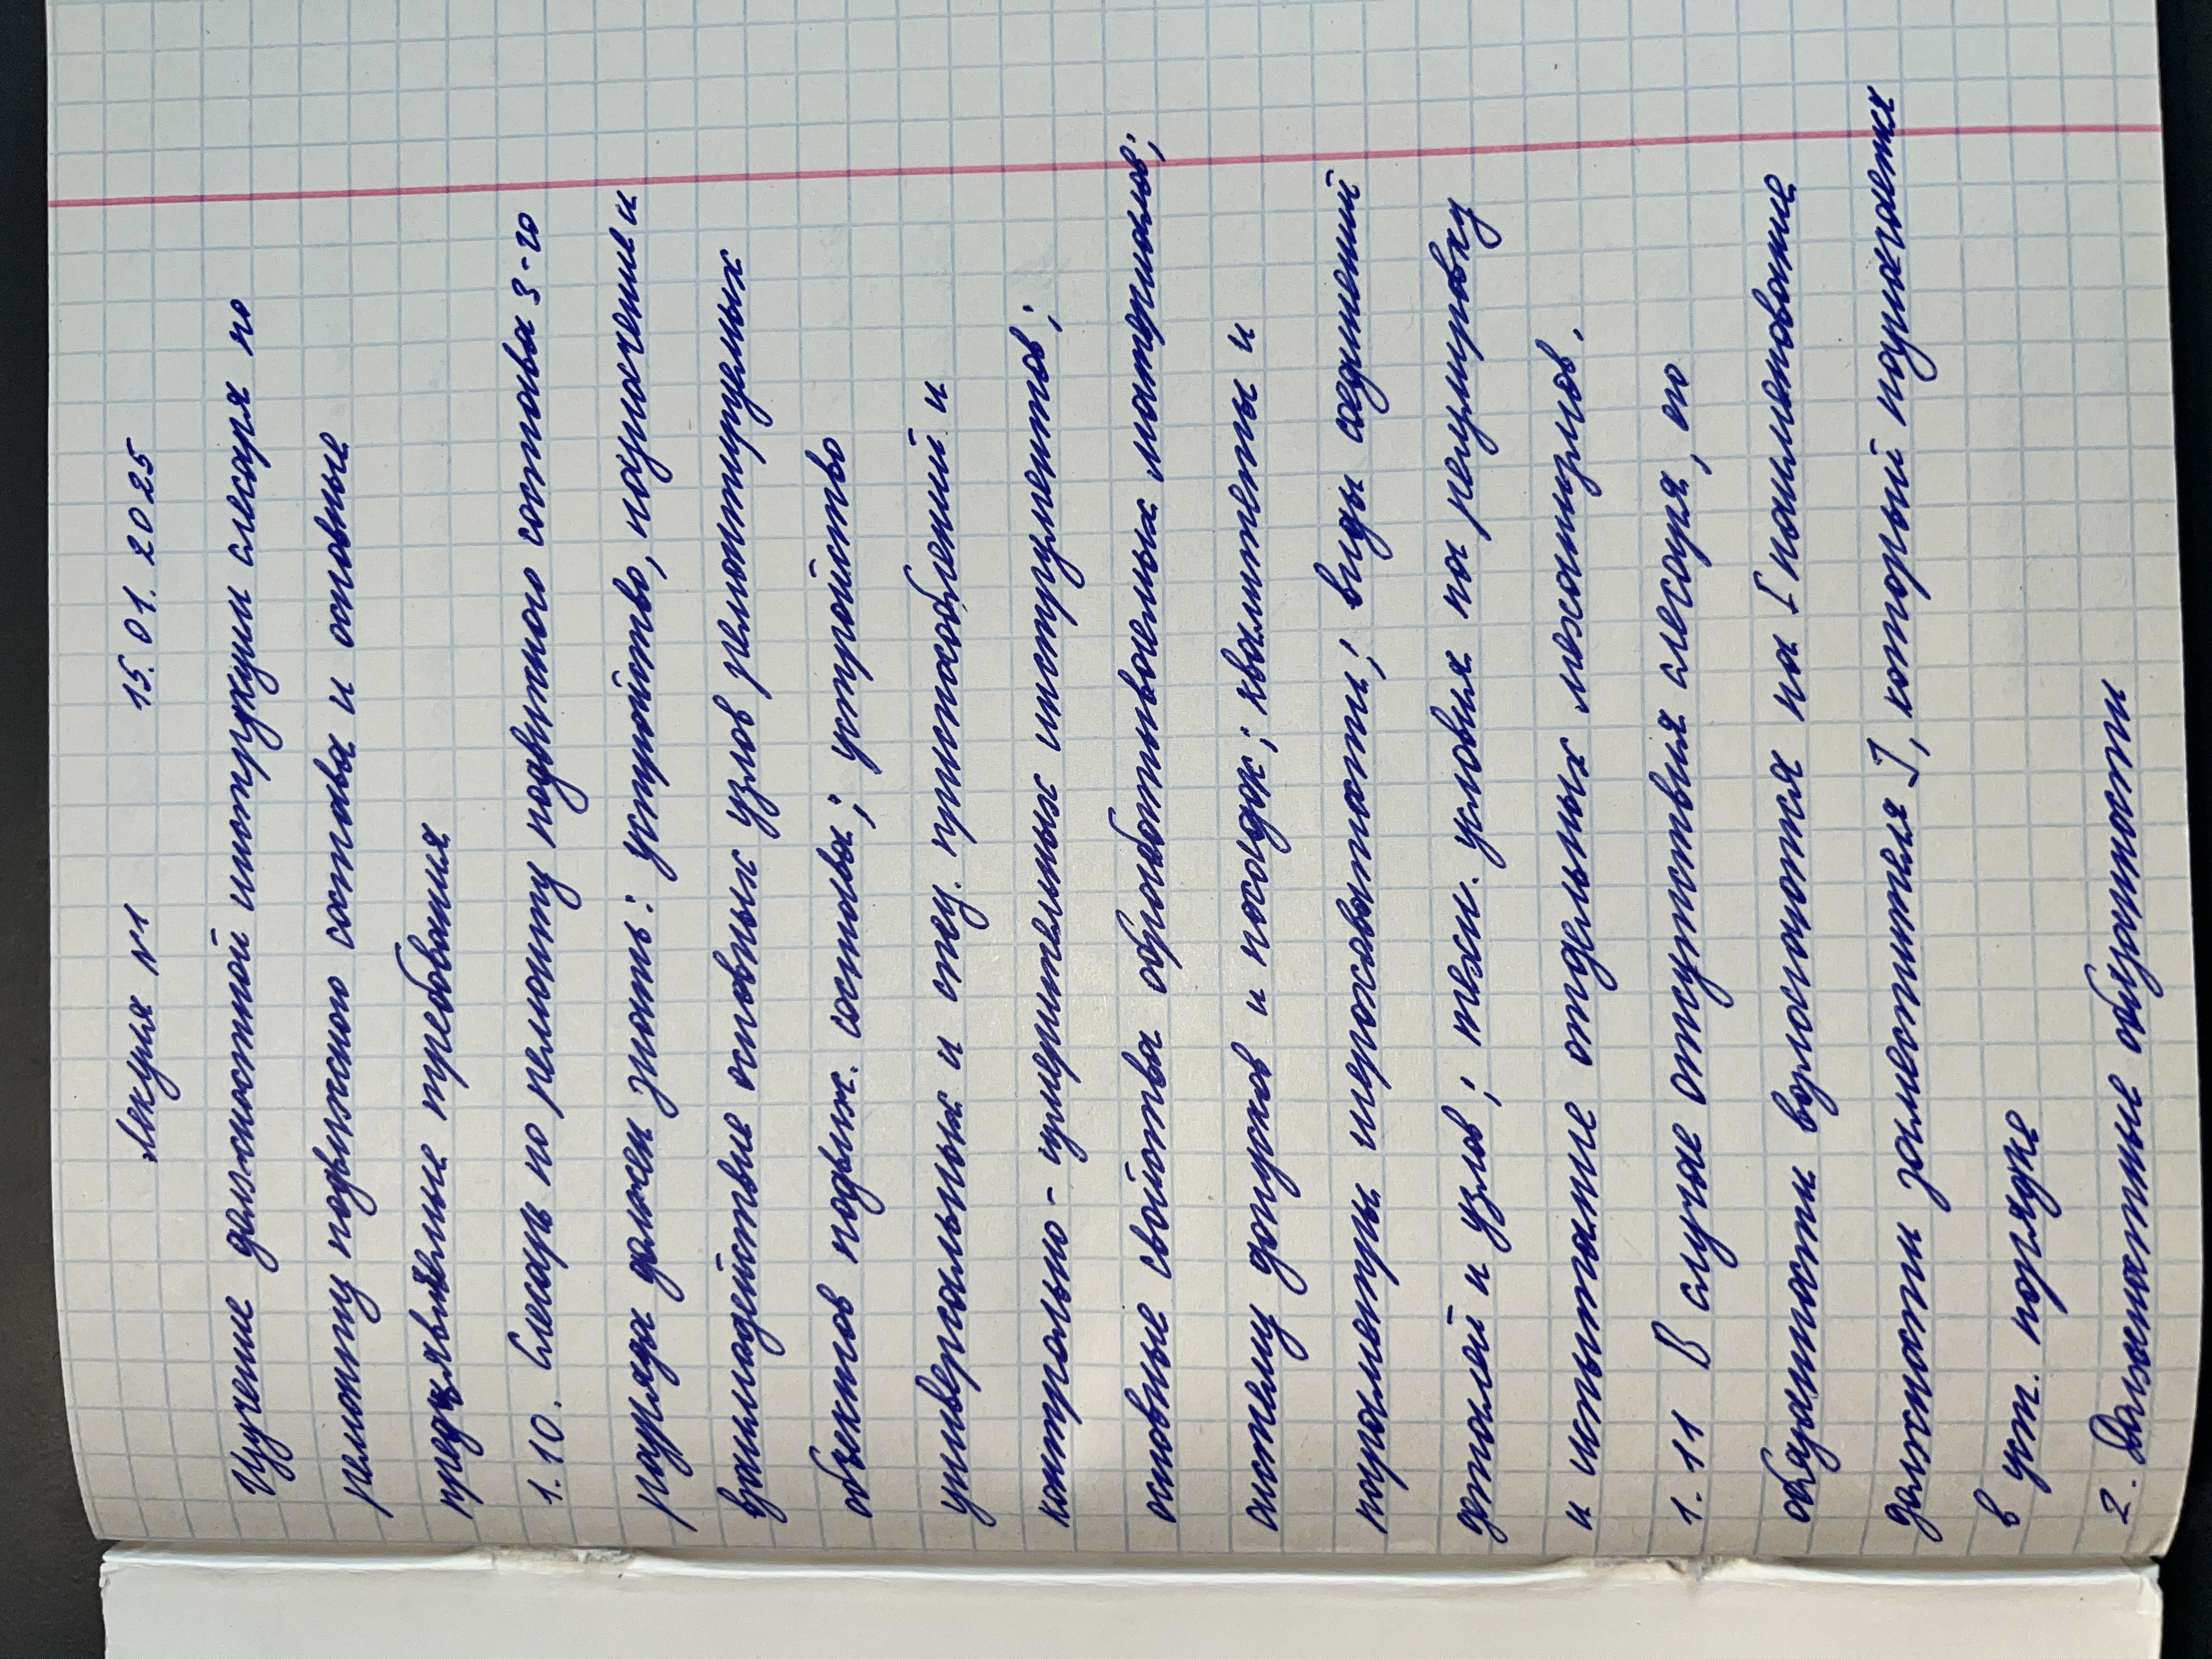 Лекция №1 15.01.2025
Изучение должностной инструкции слесаря по
ремонту подвижного состава и основные
предъявляемые требования
1.10. Слесарь по ремонту подвижного состава 3-го
разряда должен знать: устройство, назначение и
взаимодействие основных узлов ремонтируемых
объектов подвиж. состава; устройство
универсальных и спец. приспособлений и
контрольно-измерительных инструментов;
основные свойства обрабатываемых материалов;
систему допусков и посадок; квалитеты и
параметры шероховатости; виды соединений
деталей и узлов; техн. условия на регулировку
и испытание отдельных механизмов.
1.11 В случае отсутствия слесаря, его
обязанности возлагаются на [наименование
должности заместителя], который назначается
в уст. порядке
2. Должностные обязанности